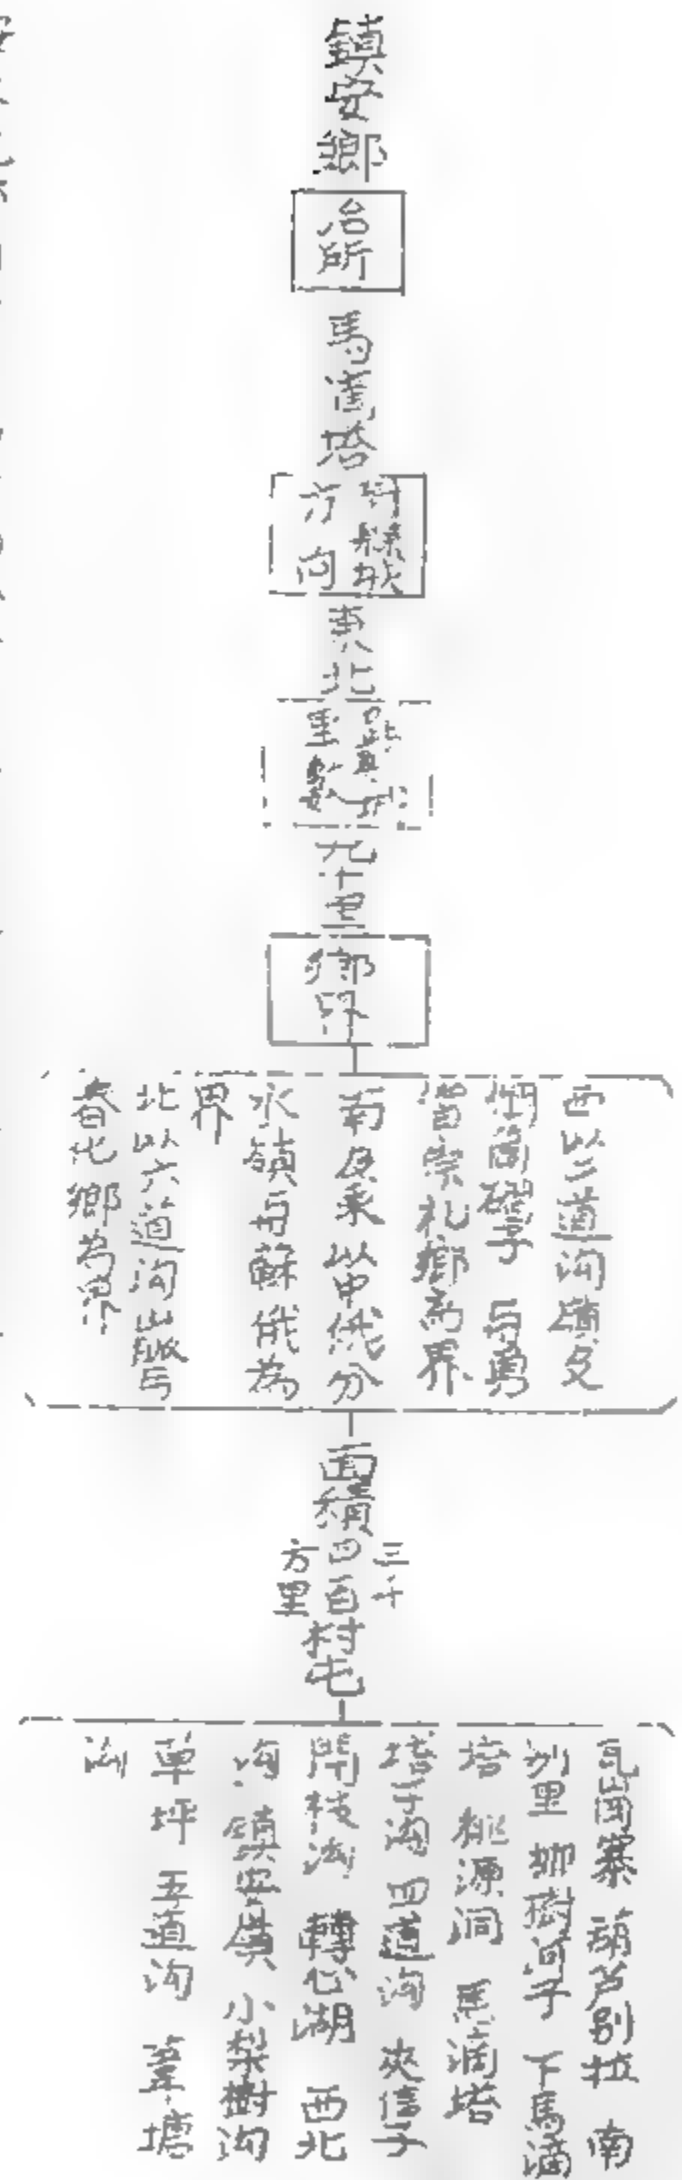 鎮安鄉
治所
馬滴塔
距縣城
方向
東北
距縣城
里數
九十里
鄉界
西以二道沟嶺及
烟筒磖子与勇
智崇礼鄉為界
南及東以中俄分
水嶺与蘇俄為
界
北以六道沟山脈与
春化鄉為界
面積
三千
四百
方里
村屯
瓦崗寨 葫芦别拉 南
别里 柳樹河子 下馬滴
塔 桃源洞 馬滴塔
塔子沟 四道沟 夾信子
閙枝沟 轉心湖 西北
沟 鎮安嶺 小梨樹沟
草坪 五道沟 葦塘
沟